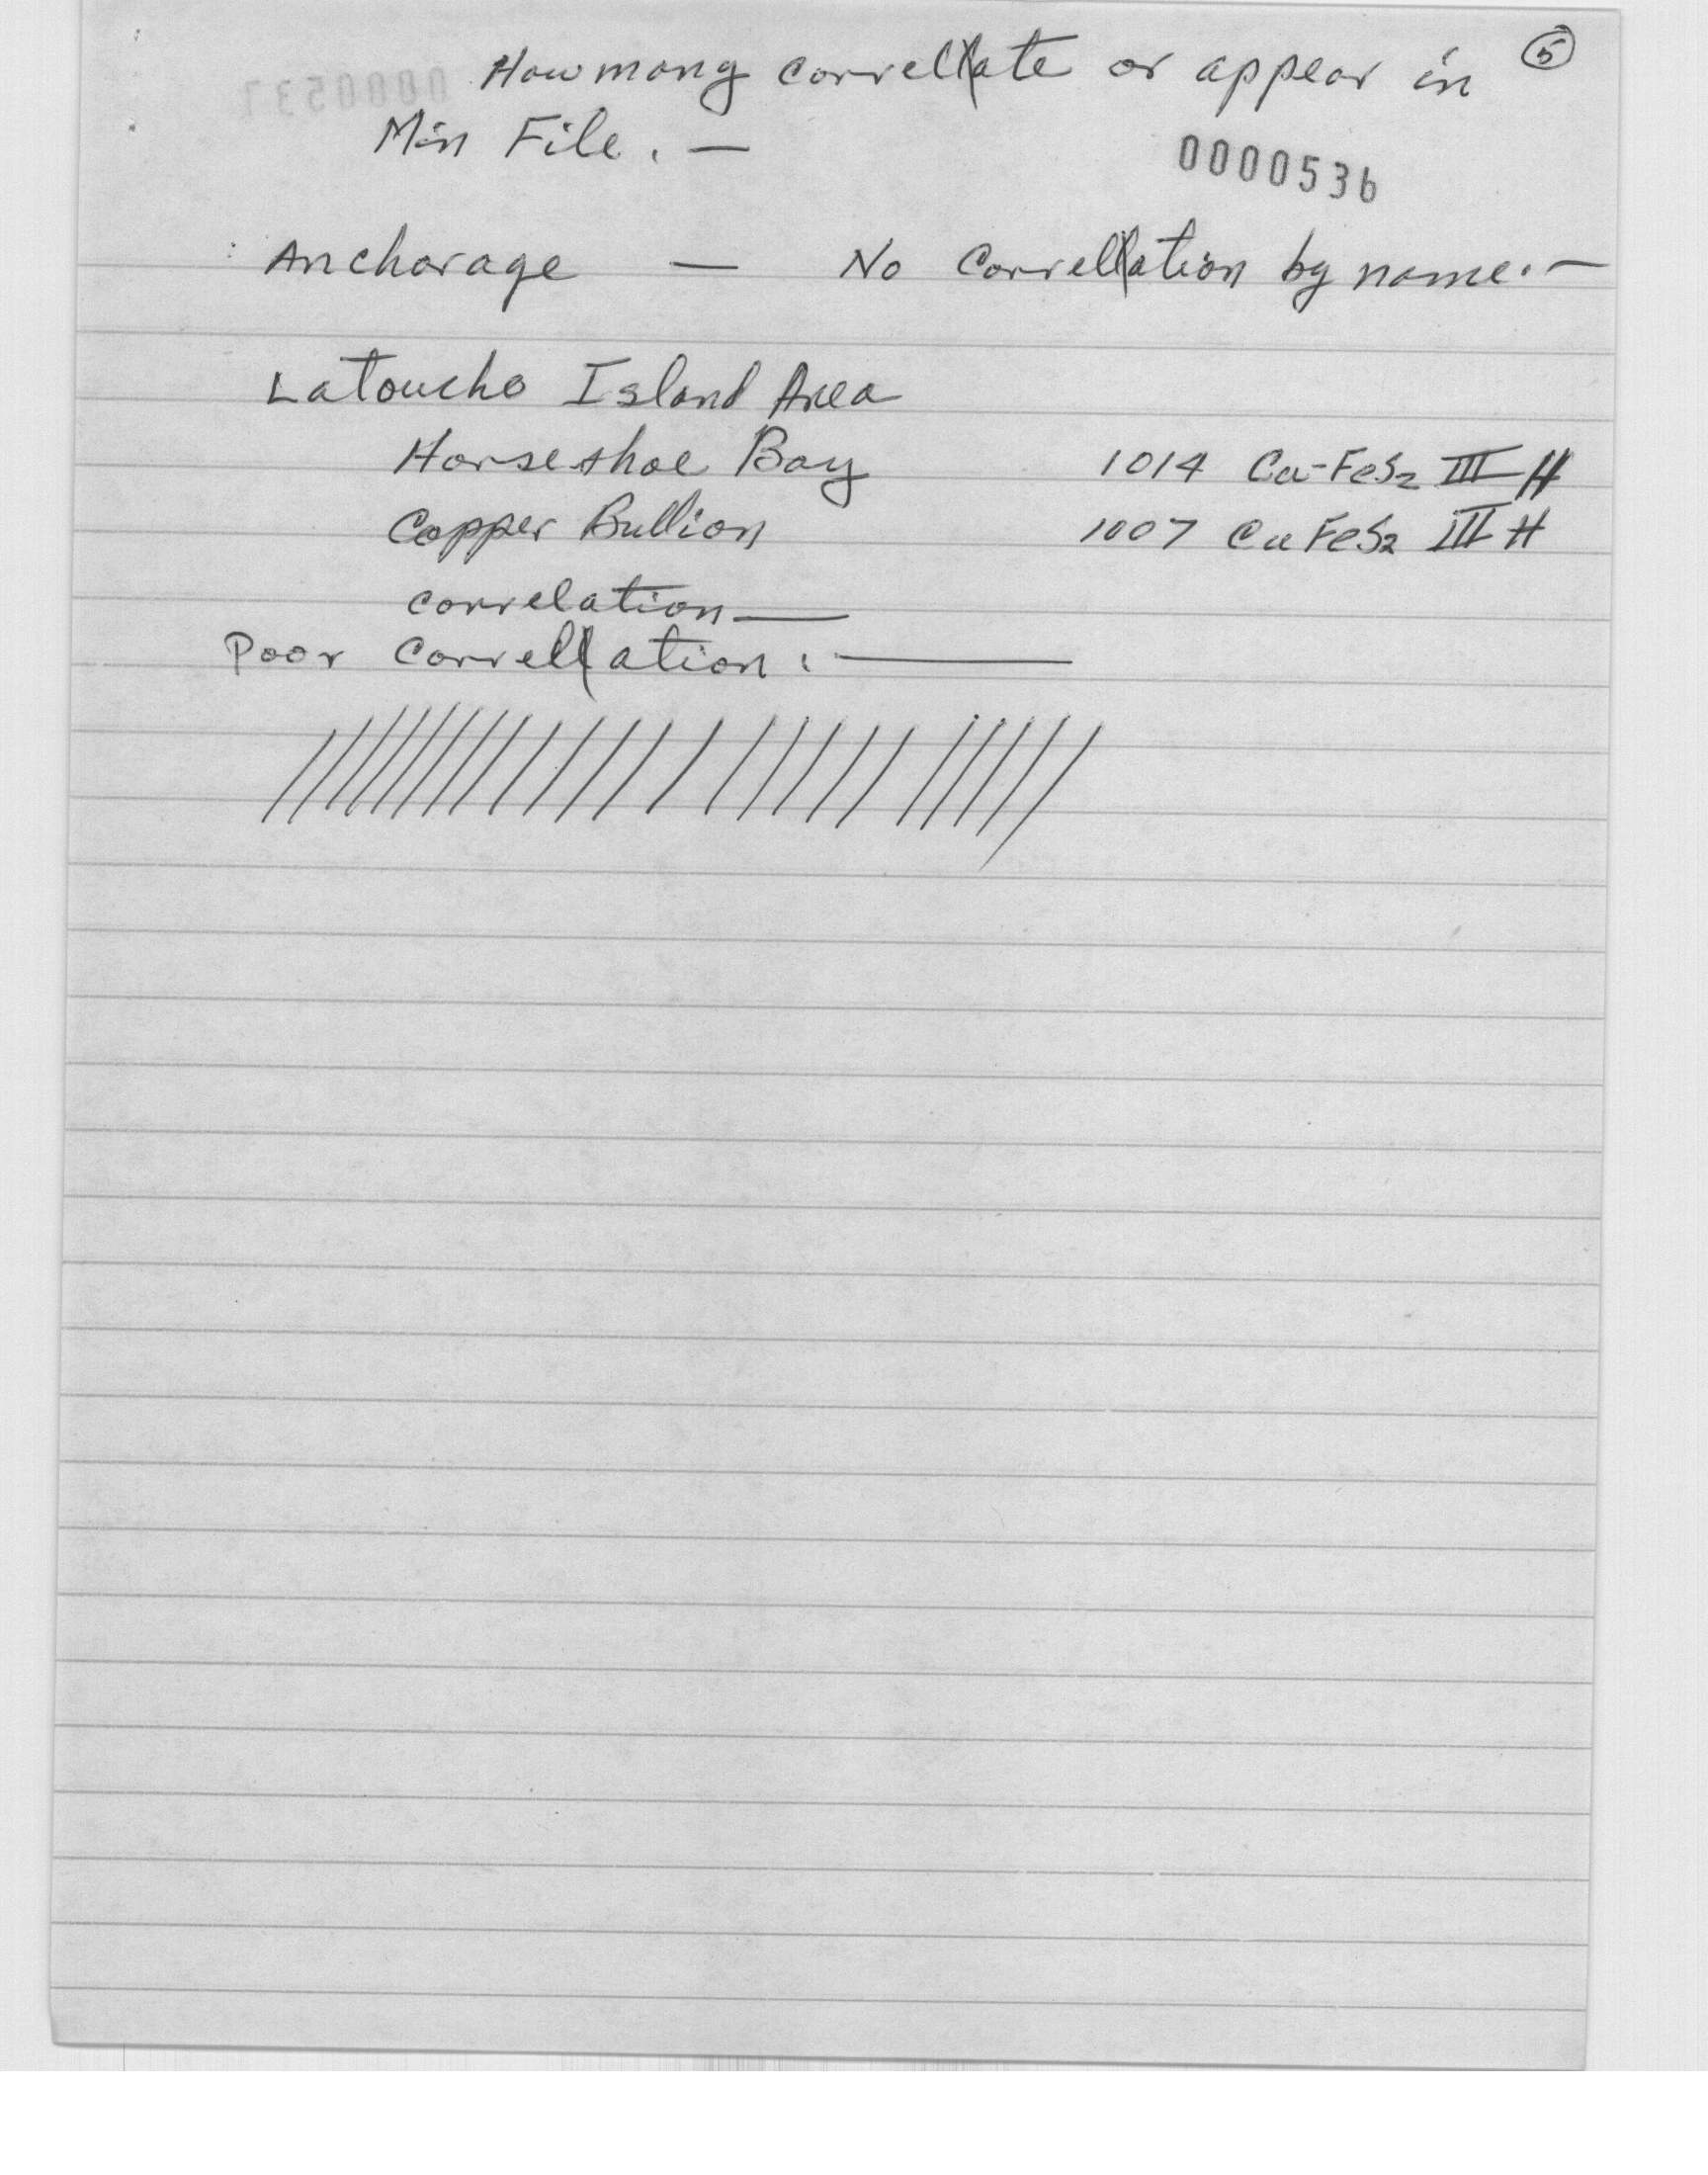 How many correllate or appear in ⑤
Min File. —
0000536
Anchorage — No Correllation by name. —
Latouche Island Area
Horseshoe Bay 1014 Cu-FeS2 III H
Copper Bullion 1007 Cu FeS2 III H
correlation —
Poor Correllation: —